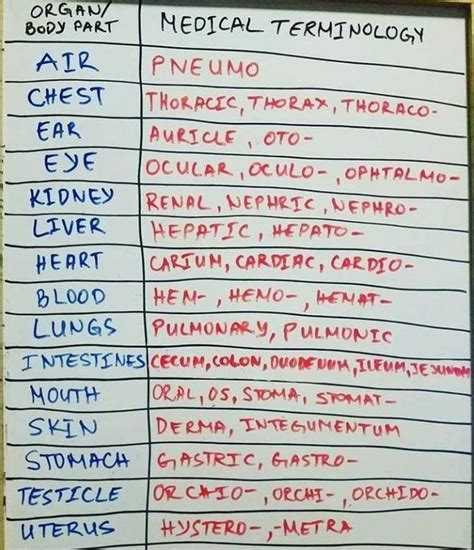 ORGAN/ BODY PART MEDICAL TERMINOLOGY
AIR PNEUMO
CHEST THORACIC, THORAX, THORACO-
EAR AURICLE, OTO-
EYE OCULAR, OCULO-, OPHTALMO-
KIDNEY RENAL, NEPHRIC, NEPHRO-
LIVER HEPATIC, HEPATO-
HEART CARIUM, CARDIAC, CARDIO-
BLOOD HEM-, HEMO-, HEMAT-
LUNGS PULMONARY, PULMONIC
INTESTINES CECUM, COLON, DUODENUM, ILEUM, JEJUNUM
MOUTH ORAL, OS, STOMA, STOMAT-
SKIN DERMA, INTEGUMENTUM
STOMACH GASTRIC, GASTRO-
TESTICLE ORCHIO-, ORCHI-, ORCHIDO-
UTERUS HYSTERO-, -METRA